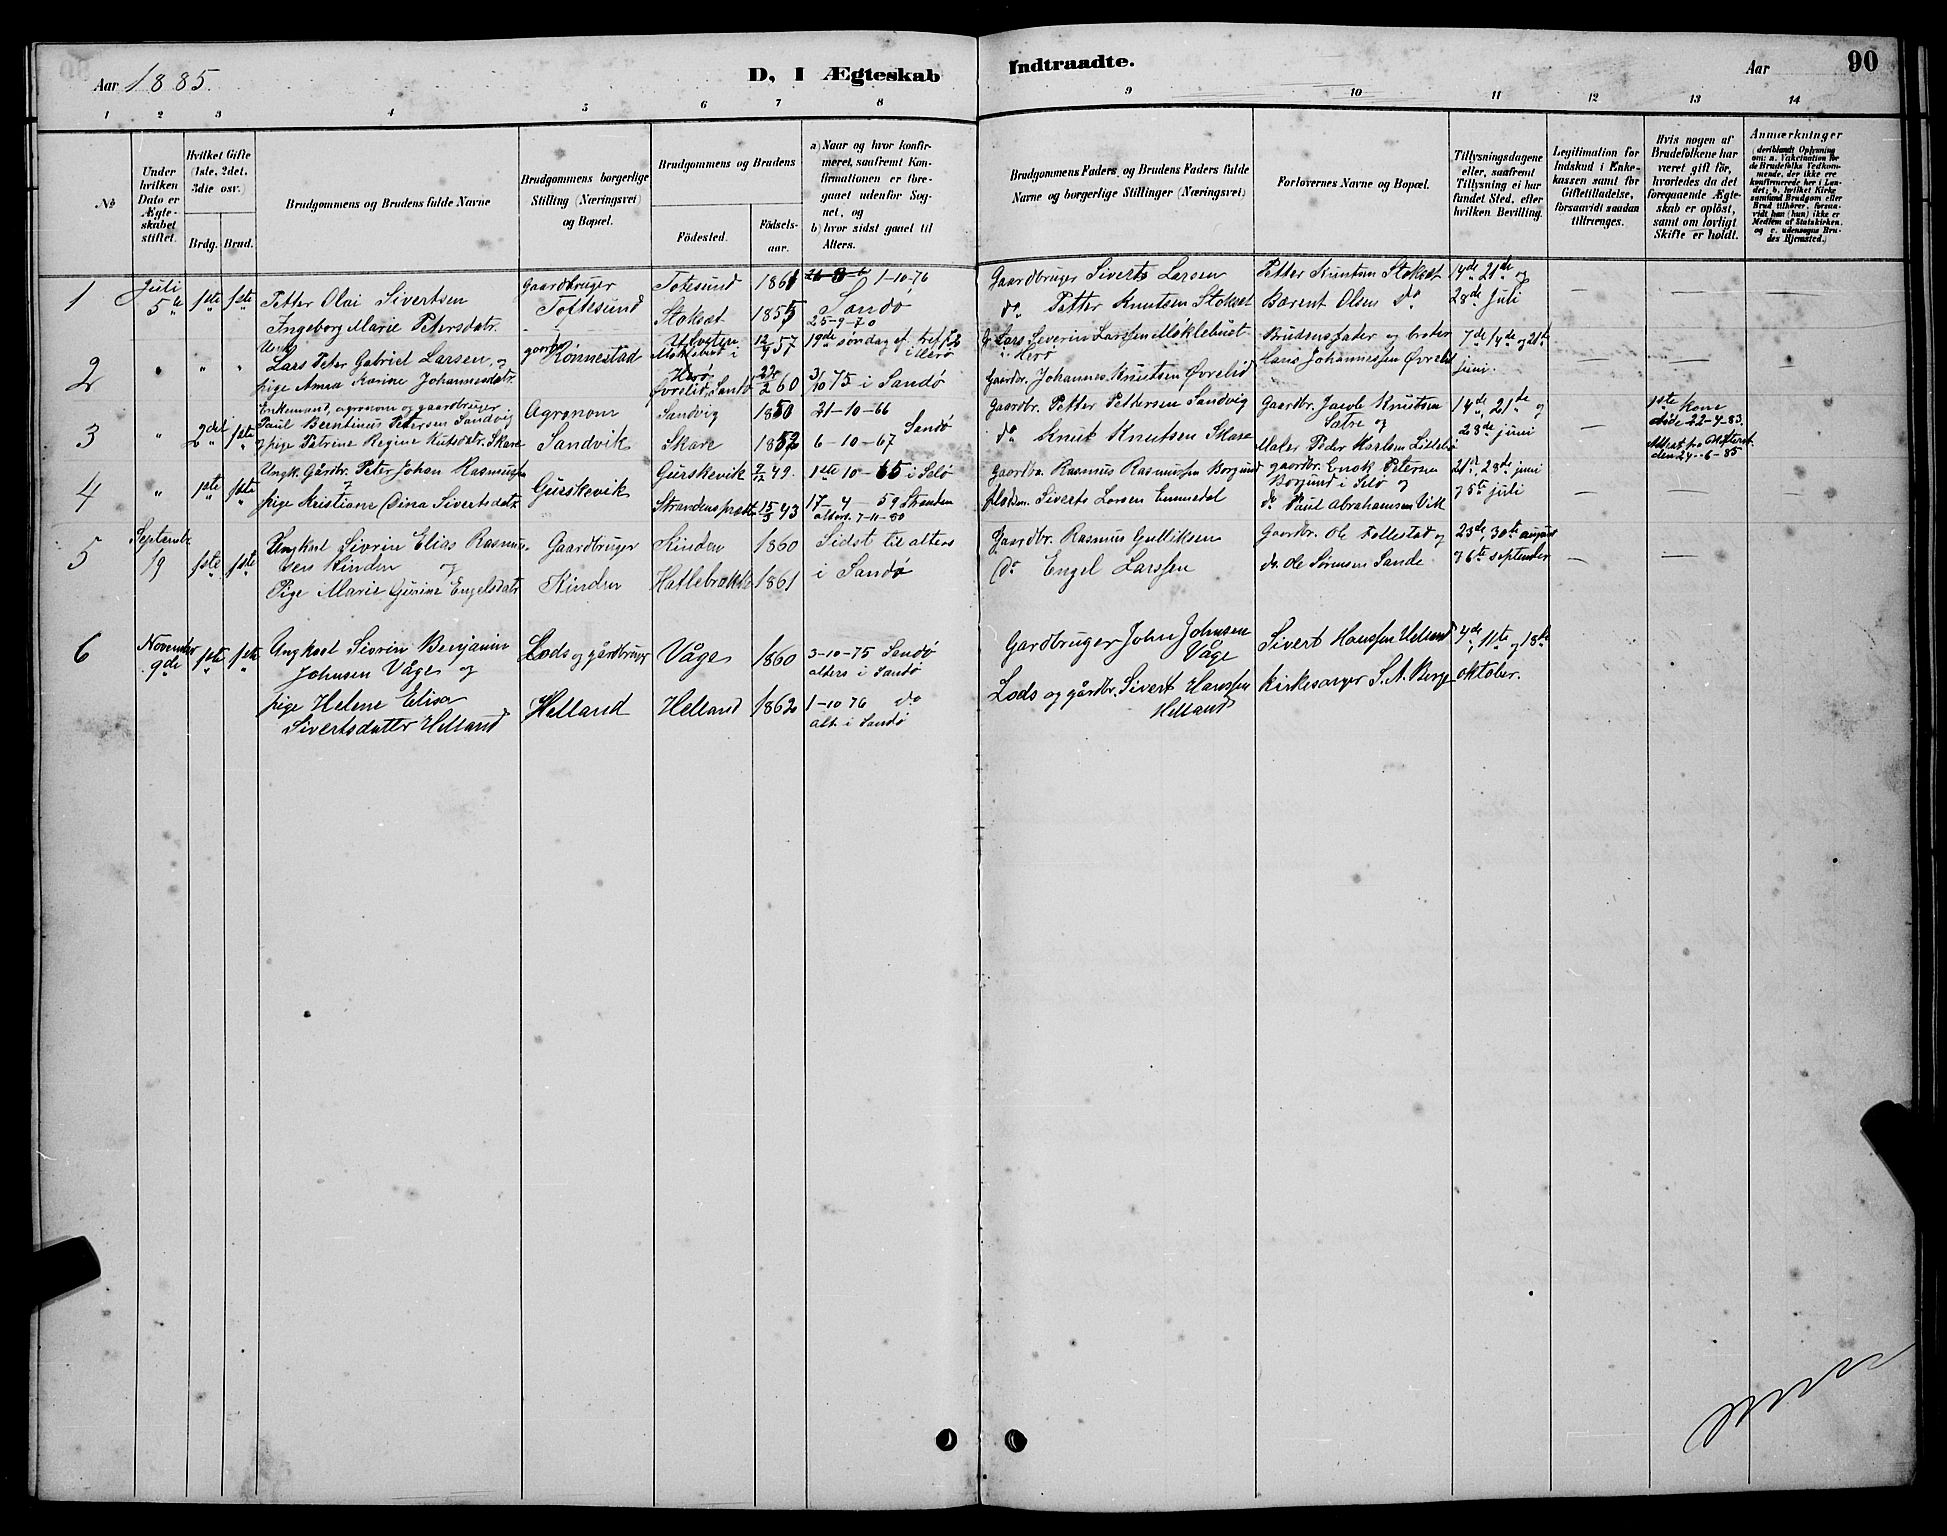 Aar 1885.
D, I Ægteskab
Indtraadte.
Aar
90
1 2 3 4 5 6 7 8 9 10 11 12 13 14
No
Under hvilken Dato er Ægteskabet stiftet.
Hvilket Gifte (1ste, 2det, 3die osv.)
Brdg. Brud.
Brudgommens og Brudens fulde Navne
Brudgommens borgerlige Stilling (Næringsvei) og Bopæl.
Brudgommens og Brudens
Fødested.
Fødselsaar.
a) Naar og hvor konfirmeret, saafremt Konfirmationen er foregaaet udenfor Sognet, og
b) hvor sidst gaaet til Alters.
Brudgommens Faders, og Brudens Faders fulde Navne og borgerlige Stillinger (Næringsvei)
Forlovernes Navne og Bopæl.
Tillysningsdagene eller, saafremt Tillysning ei har fundet Sted, efter hvilken Bevilling.
Legitimation for Indskud i Enkekassen samt for Giftetilladelse, forsaavidt saadan tiltrænges.
Hvis nogen af Brudefolkene har været gift før, hvorledes da det foregaaende Ægteskab er opløst, samt om lovligt Skifte er holdt.
Anmærkninger (deriblandt Oplysning om: a. Vakcination for de Brudefolks Vedkommende, der ikke ere konfirmerede her i Landet; b. hvilket Kirkesamfund Brudgom eller Brud tilhører, forsaavidt han (hun) ikke er Medlem af Statskirken, og c. udensogns Brudes Hjemsted.)
1 Juli 5te 1ste 1ste Petter Olai Sivertsen Gaardbruger Totesund 1861 1-10-76 Gaardbruger Siverts Larsen Petter Knutsen Stokset 14de, 21de og
Ingeborg Marie Petersdatr. Tottesund Stokset 1855 Sandø 25-9-70 do Petter Knutsen Stokset Bærent Olsen do 28de Juli
2 " " " Ungk. Lars Peter Gabriel Larsen, og gaardbr. Rønnestad Møklebust i Herø 12/9 57 19de søndag ef. tref. i Herø Lars Severin Larssen Møklebust Herø Brudens fader og broder 7de, 14de og 21de
pige Anna Karine Johannesdatr. Øvrelid, Sandø 2/2 60 3/10 75 i Sandø Gaardbr. Johannes Knutsen Øvrelid Hans Johannessen Øvrelid juni.
3 " 2det 1ste Enkemand, agronom og gaardbruger Agronom Sandvig 1850 21-10-66 Gaardbr. Petter Pettersen Sandvig Gaardbr. Jacob Knutsen Sætre og 14de, 21de og 1ste kone
Paul Berntinus Petersen Sandvig
og pige Petrine Regine Knutsdatr. Skare Sandvik Skare 1852 6-10-67 Sandø do Knut Knutsen Skare Maler Peder Karlsen Lillebø 28de juni døde 22-4-83.
Attest fra Skifteret. den 24-6-85
4 " 1ste 1ste Ungk. Gårdbr. Peter Johan Rasmussen Gurskevik Gurskevik 2/12 49. 1ste 10-65 i Selø Gaardbr. Rasmus Rasmussen Borgund gaardbr. Enok Peterne Borgund i Selø og 21de, 28de juni
pige Kristiane Dina Sivertsdatr. Strandens præst. 15/3 43 17-4-59 Stranden alters 7-11-80 Siverts Larsen Emmedal do Paul Abrahamsen Vik og 5te juli
5 September 19 1ste 1ste Ungkarl Sivrin Elias Rasmussen Kinden og Gaardbruger Kinden 1860 Sidst til alters Gaardbr. Rasmus Gulliksen Gaardbr. Ole Follestad og 23de, 30te august
Pige Marie Gurine Engelsdatr. Kinden Hatlebrække 1861 i Sandø do Engel Larssen do Ole Sørensen Sande og 6te september
6 November 9de 1ste 1ste Ungkarl Sivrin Benjamin Johnsen Våge og Lods og gårdbruger Våge 1860 3-10-75 Sandø alters i Sandø Gardbruger John Johnsen Våge Sivert Hanssen Helland 4de, 11te og 18de
pige Helene Elisa Sivertsdatter Helland Helland Helland 1862 1-10 76 do alt. i Sandø Lods og gårdbr. Sivert Hanssen Helland kirkesanger S. A. Berge oktober.